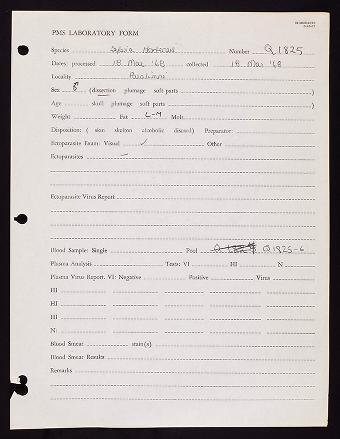 PMS LABORATORY FORM
Species Sylvia Number Q1825
Dates: processed 18 Mar '68 collected 18 Mar '68
Locality Paralimni
Sex ♂ (dissection plumage soft parts )
Age skull plumage soft parts )
Weight Fat L-M Molt
Disposition: ( skin skeleton alcoholic discard) Preparator:
Ectoparasite Exam: Visual ✓ Other
Ectoparasites —
Ectoparasite Virus Report
Blood Sample: Single Pool Q1825-6
Plasma Analysis Tests: VI HI N
Plasma Virus Report. VI: Negative Positive Virus
HI
HI
HI
N:
Blood Smear stain(s)
Blood Smear Results
Remarks